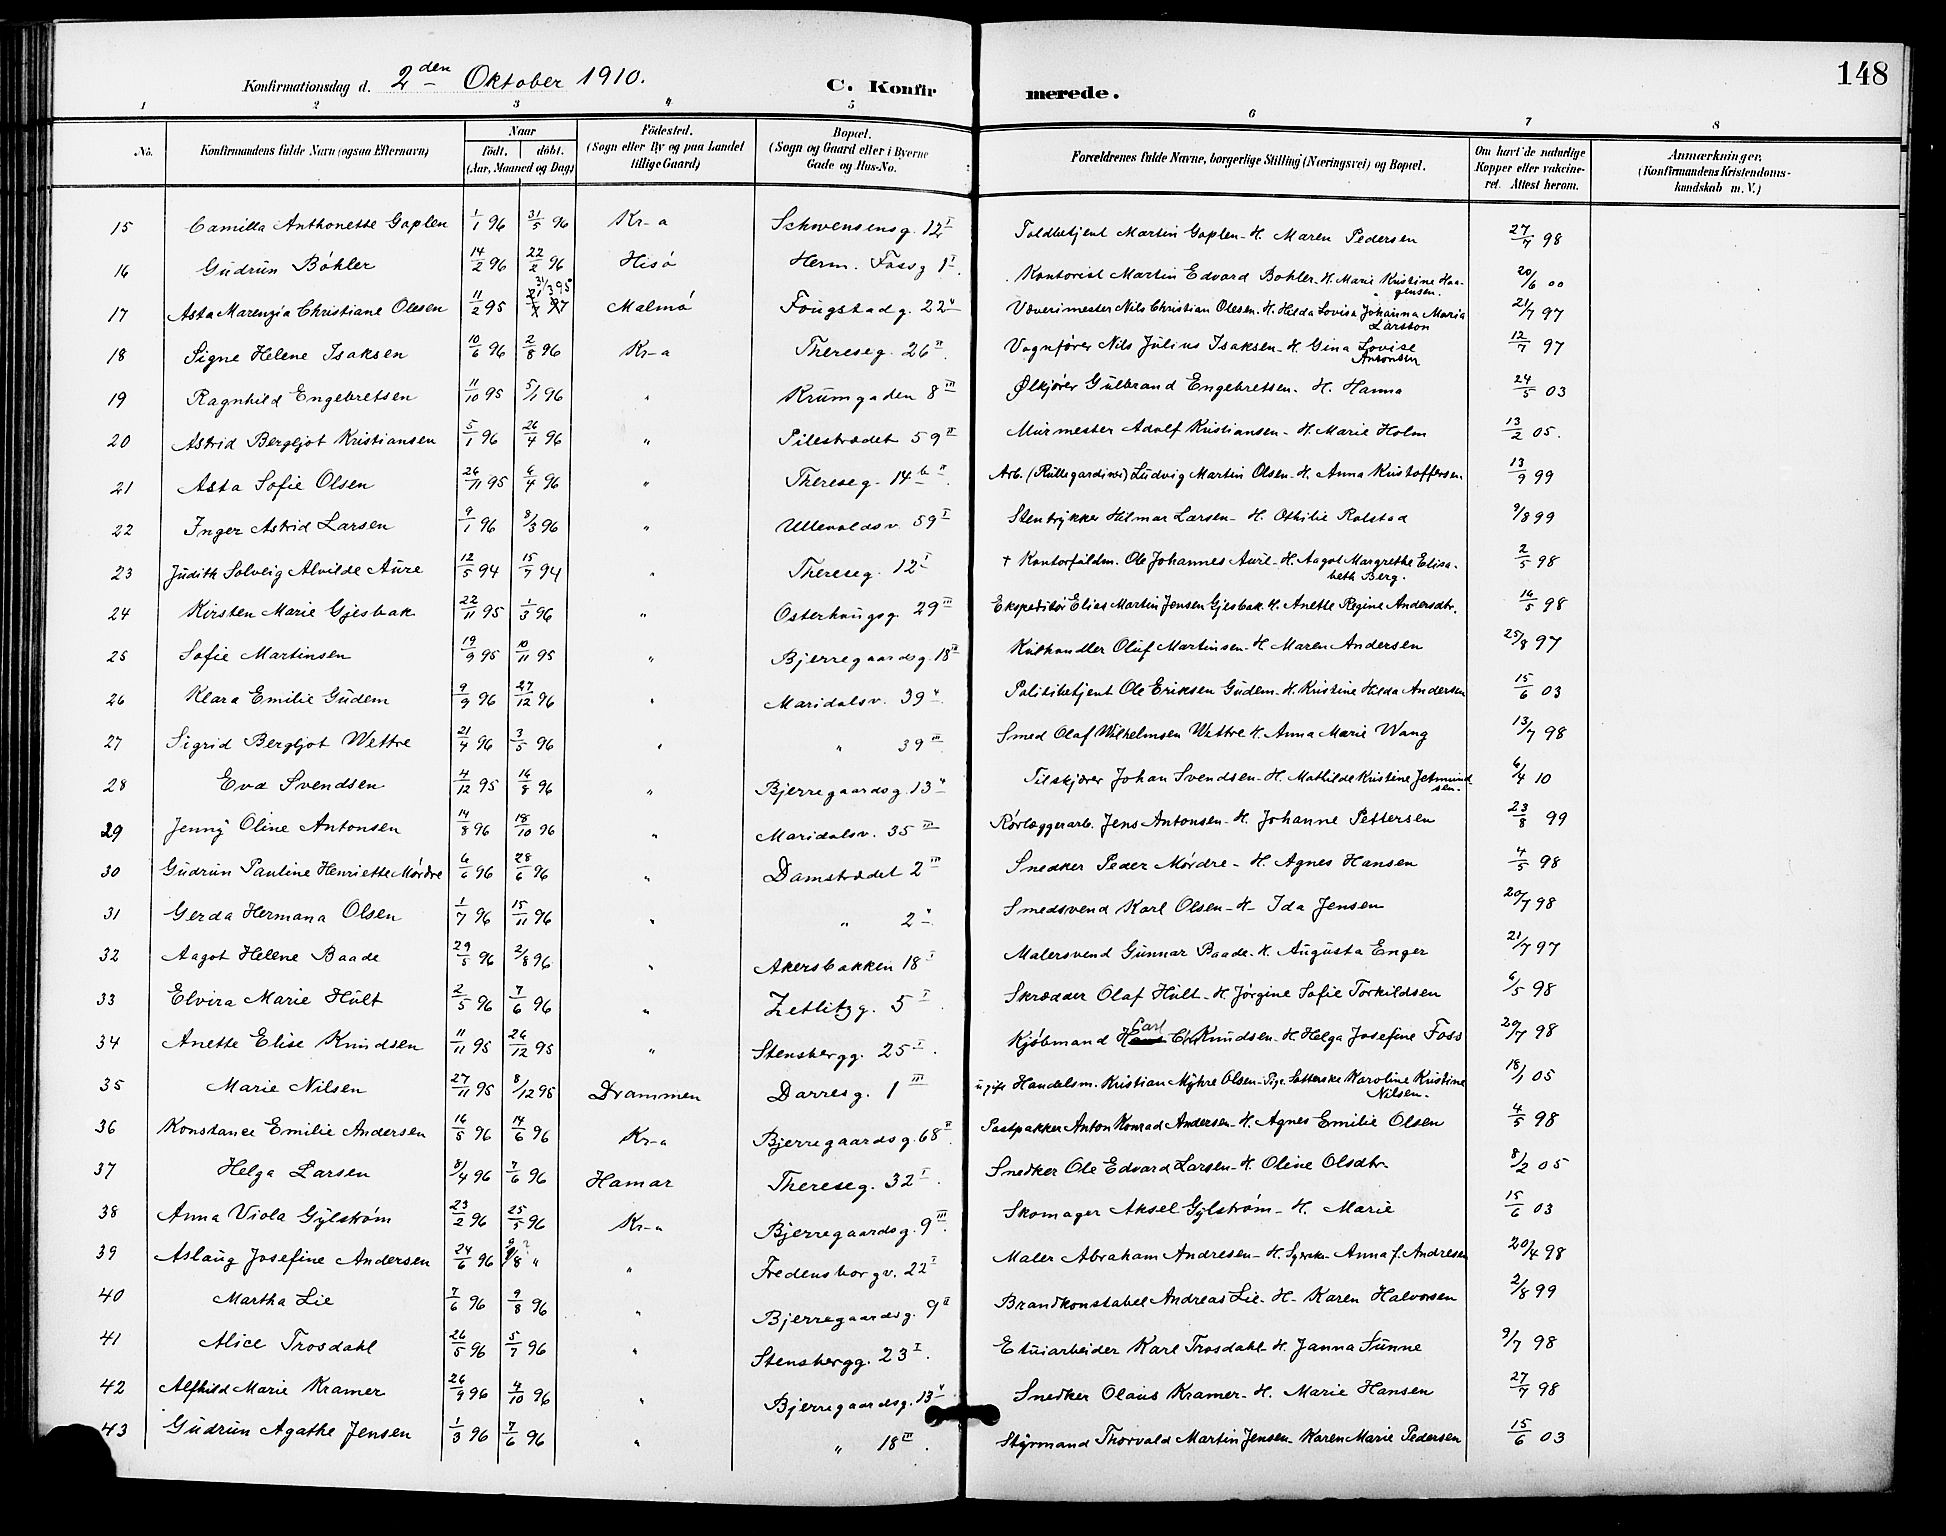 148
Konfirmationsdag d. 2den Oktober 1910. C. Konfirmerede.
1 2 3 4 5 6 7 8
No. Konfirmandens fulde Navn (ogsaa Efternavn) Naar födt. döbt. (Aar, Maaned og Dag) Födested. (Sogn eller By og paa Landet tillige Gaard) Bopæl. (Sogn og Gaard eller i Byerne Gade og Hus-No. Forældrenes fulde Navne, borgerlige Stilling (Næringsvei) og Bopæl. Om havt de naturlige Kopper eller vakcineret. Attest herom. Anmærkninger, (Konfirmandens Kristendomskundskab m. V.)
15 Camilla Anthonette Gaplen 1/1 96 31/5 96 Kr-a Schwensensg. 12 I Toldbetjent Martin Gaplen - H. Maren Pedersen 27/7 98
16 Gudrun Bøhler 14/2 96 22/2 96 Hisø Herm. Fossg 1 I. Kontorist Martin Edvard Bøhler. H. Marie Kristine Haagensen. 20/6 00
17 Asta Marenzia Christiane Olesen 11/2 95 31/3 95 Malmø Fougstadg. 22 Væverimester Nils Christian Olesen. H. Hilda Lovisa Johanna Maria Larsson 21/7 97
18 Signe Helene Isaksen 10/6 96 2/8 96 Kr-a Thereseg. 26 II. Vognfører Nils Julius Isaksen - H. Gina Lovise Antonsen 12/7 97
19 Ragnhild Engebretsen 11/10 95 5/1 96 " Krumgaden 8 III Ølkjører Gulbrand Engebretsen. H. Hanna 24/5 03
20 Astrid Bergljot Kristiansen 5/1 96 26/4 96 " Pilestrædet 59 II Murmester Adolf Kristiansen - H. Marie Holm 13/2 05.
21 Asta Sofie Olsen 26/11 95 6/4 96 " Thereseg. 14 b II. Arb. (Rullegardiner) Ludvig Martin Olsen - H. Anna Kristoffersen 13/9 99
22 Inger Astrid Larsen 9/1 96 8/3 96 " Ullevoldsv. 59 I Stentrykker Hilmar Larsen - H. Othilie Rolstad 9/8 99
23 Judith Solveig Alvilde Aure 12/5 94 15/7 94 " Thereseg. 12 I + Kontorfuldm. Ole Johannes Aure - H. Aagot Margrethe Elisabeth Berg. 2/5 98
24 Kirsten Marie Gjesbak 22/11 95 1/3 96 " Osterhaugsg. 29 III Ekspeditør Elias Martin Jensen Gjesbak H. Anette Regine Andersdtr. 16/5 98
25 Sofie Martinsen 19/9 95 10/11 95 " Bjerregaardsg. 18 Kulhandler Oluf Martinsen - H. Maren Andersen 25/8 97
26 Klara Emilie Gudem 9/9 96 27/12 96 " Maridalsv. 39 Politibetjent Ole Eriksen Gudem - H. Kristine Hilda Andersen 15/6 03
27 Sigrid Bergljot Wettre 21/4 96 3/5 96 " " 39 III. Smed Olaf Wilhelmsen Wettre H. Anna Marie Wang 13/7 98
28 Eva Svendsen 4/12 95 16/8 96 " Bjerregaardsg. 13 Pilskjører Johan Svendsen - H. Mathilde Kristine Jetmundsen. 6/4 10
29 Jenny Oline Antonsen 14/8 96 18/10 96 " Maridalsv. 35 III Rørlæggerarb. Jens Antonsen - H. Johanne Pettersen 23/8 99
30 Gudrun Pauline Henriette Mørdre 6/6 96 28/6 96 " Damstrædet 2 III Snedker Peder Mørdre - H. Agnes Hansen 4/5 98
31 Gerda Hermana Olsen 1/7 96 15/11 96 " " 2 Smedsvend Karl Olsen - H - Ida Jensen 20/7 98
32 Aagot Helene Baade 29/5 96 2/8 96 " Akersbakken 18 I Malersvend Gunnar Baade. H. Augusta Enger 21/7 97
33 Elvira Marie Hult 2/5 96 7/6 96 " Zetlitzg. 5 I. Skrædder Olaf Hult - H. Jørgine Sofie Torkildsen 6/5 98
34 Anette Elise Knudsen 11/11 95 26/12 95 " Stensbergg. 25 I. Kjøbmand Carl Chr. Knudsen - H. Helga Josefine Foss 20/7 98
35 Marie Nilsen 27/11 95 8/12 95 Drammen Darresg. 1 III ugift Handelsm. Kristian Myhre Olsen - Pige Satterske Karoline Kristine Nilsen. 18/1 05
36 Konstance Emilie Andersen 16/5 96 14/6 96 Kr-a Bjerregaardsg. 68 II. Postpakker Anton Konrad Andersen - H. Agnes Emilie Olsen 4/5 98
37 Helga Larsen 8/4 96 7/6 96 Hamar Thereseg. 32 I. Snedker Ole Edvard Larsen - H. Oline Olsdtr. 8/2 05
38 Anna Viola Gylstrøm 23/2 96 25/5 96 Kr-a Bjerregaardsg. 9 III. Skomager Aksel Gylstrøm - H. Marie 15/6 03
39 Aslaug Josefine Andersen 24/6 96 9/8 " " Fredensborgv. 22 I Maler Abraham Andresen - H. Syersk Anna f. Andresen 20/4 98
40 Martha Lie 7/6 96 9/8 96 " Bjerregaardsg. 9 II Brandkonstabel Andreas Lie - H - Karen Halvorsen 2/8 99
41 Alice Trosdahl 26/5 96 5/7 96 " Stensbergg. 23 I. Etuiarbeider Karl Trosdahl H. Janna Sunne 9/7 98
42 Alfhild Marie Kramer 26/9 96 4/10 96 " Bjerregaardsg. 13 Snedker Olaus Kramer - H. Marie Hansen 27/7 98
43 Gudrun Agathe Jensen 1/3 96 7/6 96 " " 18 II. Styrmand Thorvald Martin Jensen - Karen Marie Pedersen 15/6 03